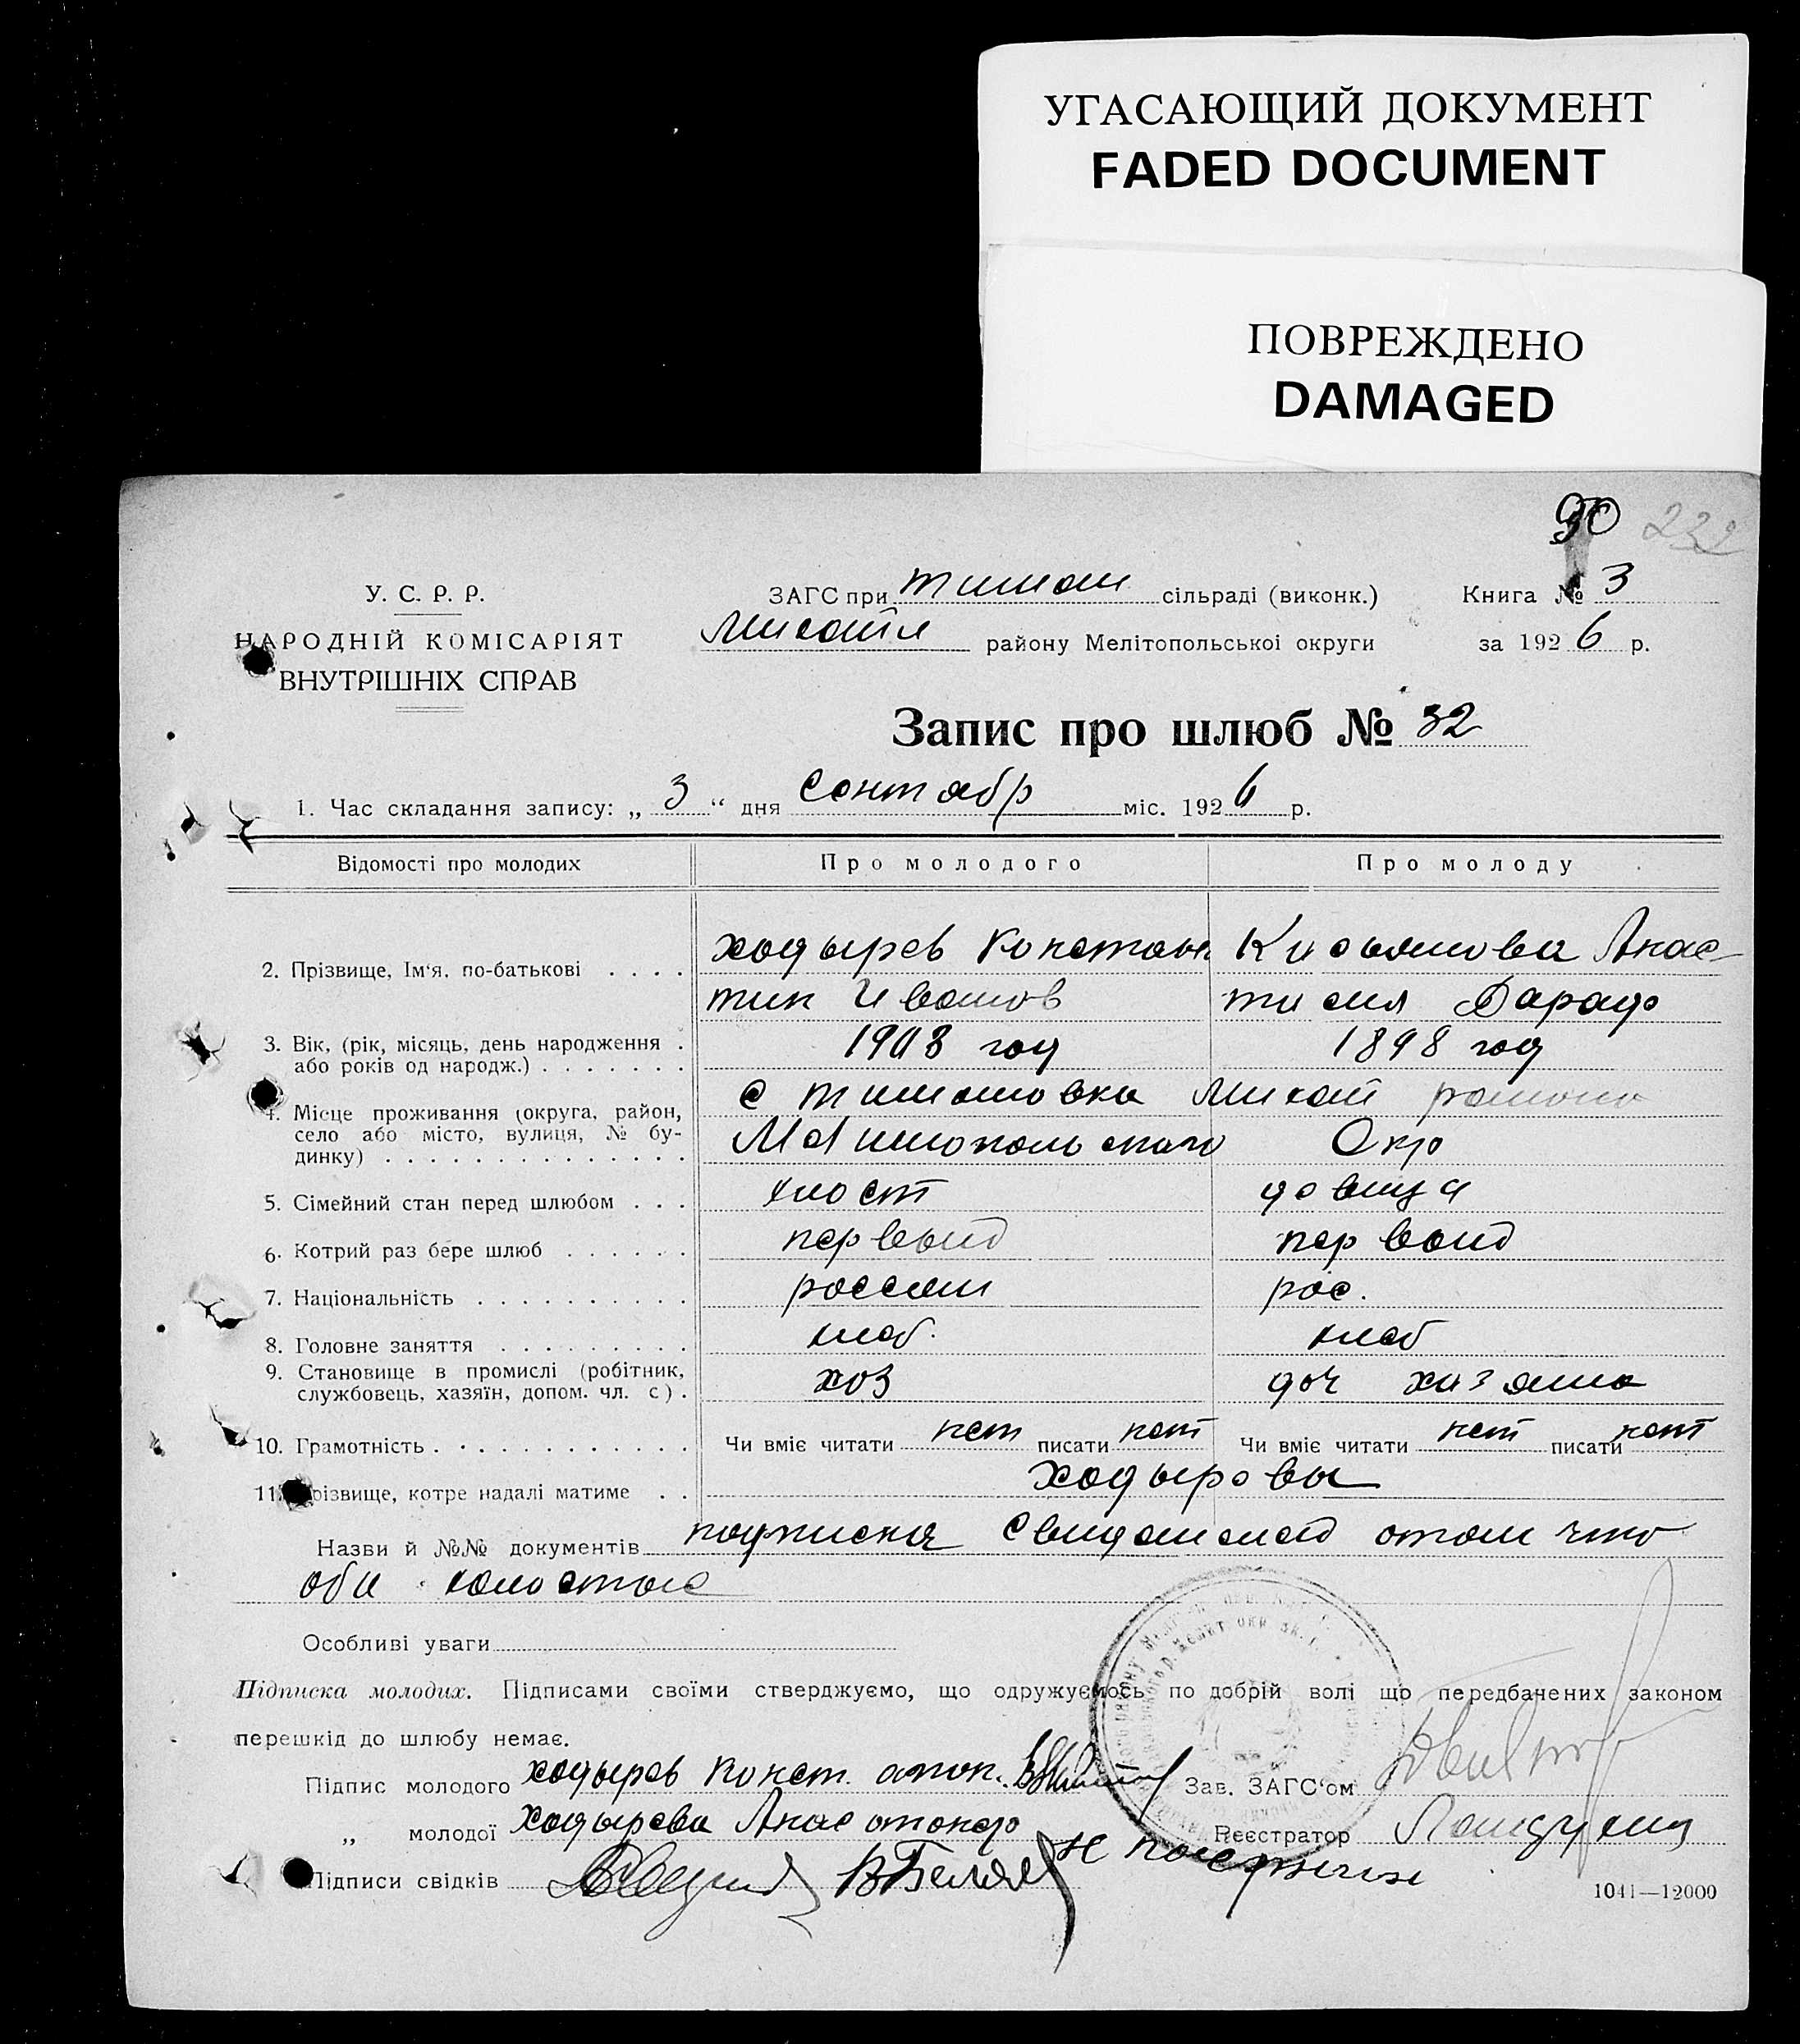 УГАСАЮЩИЙ ДОКУМЕНТ
FADED DOCUMENT
ПОВРЕЖДЕНО
DAMAGED
90 232
У. С. Р. Р.
НАРОДНІЙ КОМІСАРІЯТ
ВНУТРІШНІХ СПРАВ
ЗАГС при тимош сільраді (виконк.)
Михайл району Мелітопольської округи
Книга № 3
за 1926 р.
Запис про шлюб № 32
1. Час складання запису: „ 3 “ дня сентябр міс. 1926 р.
Відомості про молодих Про молодого Про молоду
2. Прізвище, Ім‘я, по-батькові . . . . ходырев Констан Анас
тин Иванов тасия
3. Вік, (рік, місяць, день народження . 1903 год 1898 год
або років од народж.) . . . . . . .
4. Місце проживання (округа, район, с тимошовка Михай района
село або місто, вулиця, № бу- Окр
динку) . . . . . . . . . . . . . .
5. Сімейний стан перед шлюбом . . . хлост девица
6. Котрий раз бере шлюб . . . . . . первый первый
7. Національність . . . . . . . . . . россии рос.
8. Головне заняття . . . . . . . . . хлеб. хлеб
9. Становище в промислі (робітник, хоз доч хазяина
службовець, хазяїн, допом. чл. с) .
10. Грамотність . . . . . . . . . . . . Чи вміє читати нет писати нет Чи вміє читати нет писати нет
11. Прізвище, котре надалі матиме . . Ходыревы
Назви й №№ документів подписка свидетелей отом что
оби холостые
Особливі уваги
Підписка молодих. Підписами своїми стверджуємо, що одружуємось по добрій волі що передбачених законом
перешкід до шлюбу немає.
Підпис молодого ходырев Конст. Зав. ЗАГС‘ом
„ молодої Ходырева Анас Реєстратор
Підписи свідків
1041—12000